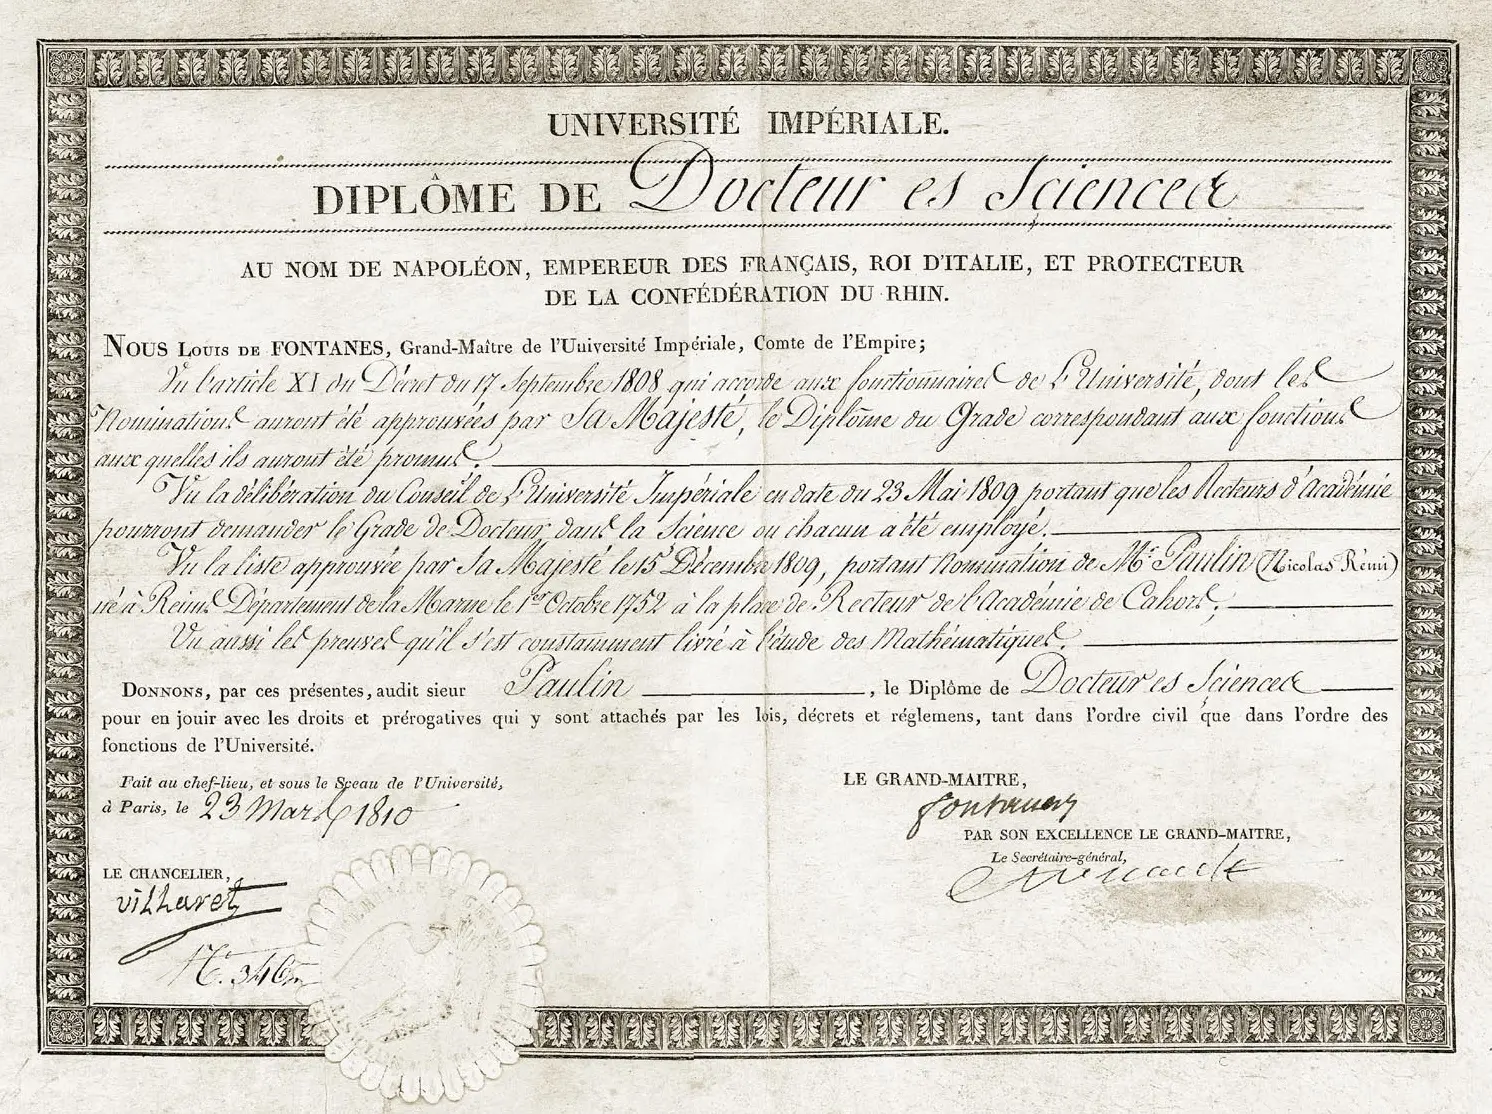 UNIVERSITÉ IMPÉRIALE.
DIPLÔME DE Docteur es Sciences
AU NOM DE NAPOLÉON, EMPEREUR DES FRANÇAIS, ROI D'ITALIE, ET PROTECTEUR
DE LA CONFÉDÉRATION DU RHIN.
NOUS LOUIS DE FONTANES, Grand-Maître de l'Université Impériale, Comte de l'Empire;
Vu l'article XI du Décret du 17 Septembre 1808 qui accorde aux fonctionnaires de L'Université, dont les
Nominations auront été approuvées par Sa Majesté, le Diplôme du Grade correspondant aux fonctions
aux quelles ils auront été promus.
Vu la délibération du Conseil de L'Université Impériale en date du 23 Mai 1809 portant que les Recteurs d'Académie
pourront demander le Grade de Docteur dans la Science ou chacun a été employé.
Vu la liste approuvée par Sa Majesté le 15 Décembre 1809, portant Nomination de Mr. Paulin (Nicolas Rémi)
né à Reims Département de la Marne le 1er Octobre 1752 à la place de Recteur de l'Académie de Cahors;
Vu aussi les preuves qu'il s'est constamment livré à l'étude des Mathématiques.
DONNONS, par ces présentes, audit sieur Paulin, le Diplôme de Docteur es Sciences
pour en jouir avec les droits et prérogatives qui y sont attachés par les lois, décrets et réglemens, tant dans l'ordre civil que dans l'ordre des
fonctions de l'Université.
Fait au chef-lieu, et sous le Sceau de l'Université,
à Paris, le 23 Mars 1810
LE GRAND-MAITRE,
Fontanes
PAR SON EXCELLENCE LE GRAND-MAITRE,
Le Secrétaire-général,
LE CHANCELIER,
Villaret